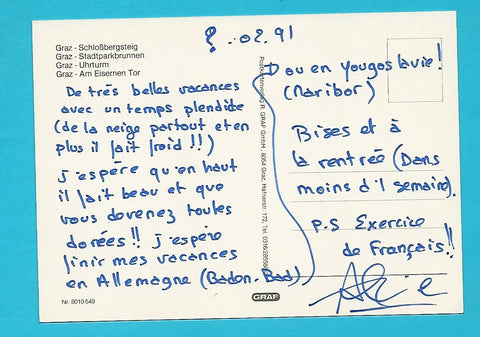 Graz - Schloßbergsteig
Graz - Stadtparkbrunnen
Graz - Uhrturm
Graz - Am Eisernen Tor
? .02.91
De très belles vacances
avec un temps plendide
(de la neige partout et en
plus il fait froid !!)
j'espère qu'en haut
il fait beau et que
vous devenez toutes
dorées !! j'espère
finir mes vacances
en Allemagne (Baden-Bad)
D ou en yougoslavie !
(Maribor)
Bises et à
la rentrée (Dans
moins d'1 semaine).
P.S Exercice
de Français !!
Postkartenverlag R. GRAF GmbH., 8054 Graz, Harterstr. 172, Tel.
Nr. 8010-549
GRAF